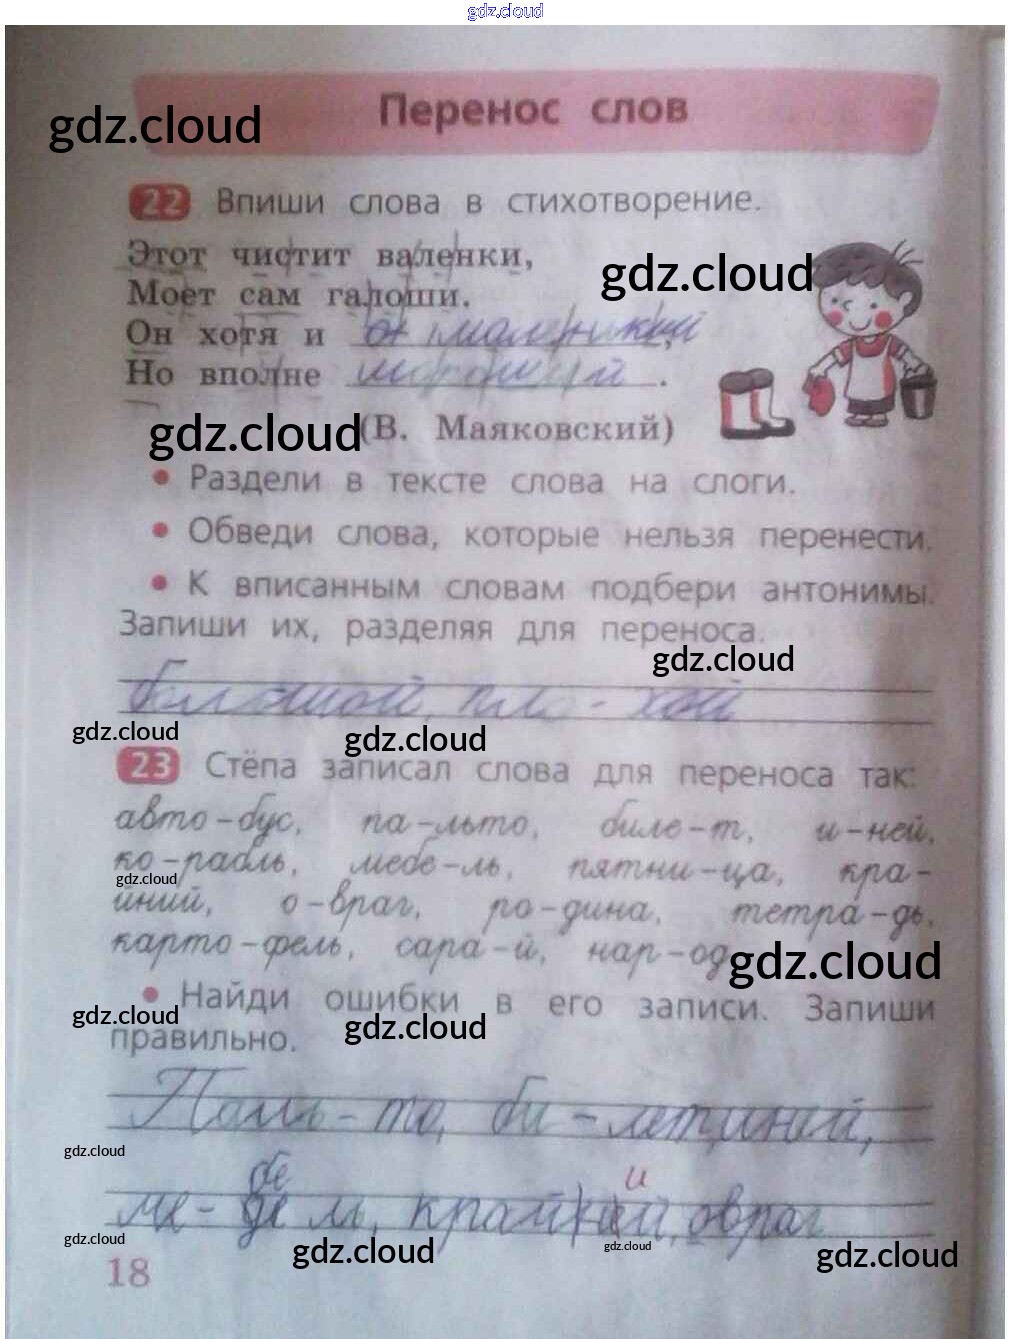 gdz.cloud
Перенос слов
gdz.cloud
22 Впиши слова в стихотворение.
Этот чистит валенки,
gdz.cloud
Моет сам галоши.
Он хотя и маленький,
Но вполне хороший.
(В. Маяковский)
gdz.cloud
• Раздели в тексте слова на слоги.
• Обведи слова, которые нельзя перенести.
• К вписанным словам подбери антонимы.
Запиши их, разделяя для переноса.
gdz.cloud
большой, пло-хой
gdz.cloud
gdz.cloud
23 Стёпа записал слова для переноса так:
авто-бус, па-льто, биле-т, и-ней,
ко-рабль, мебе-ль, пятни-ца, кра-
gdz.cloud
йний, о-враг, ро-дина, тетра-дь,
карто-фель, сара-й, нар-од
gdz.cloud
• Найди ошибки в его записи. Запиши
gdz.cloud
gdz.cloud
правильно.
Паль-то, би-лет, иней,
gdz.cloud
бе и
ме- ль, край , овраг
gdz.cloud
gdz.cloud
gdz.cloud
gdz.cloud
18